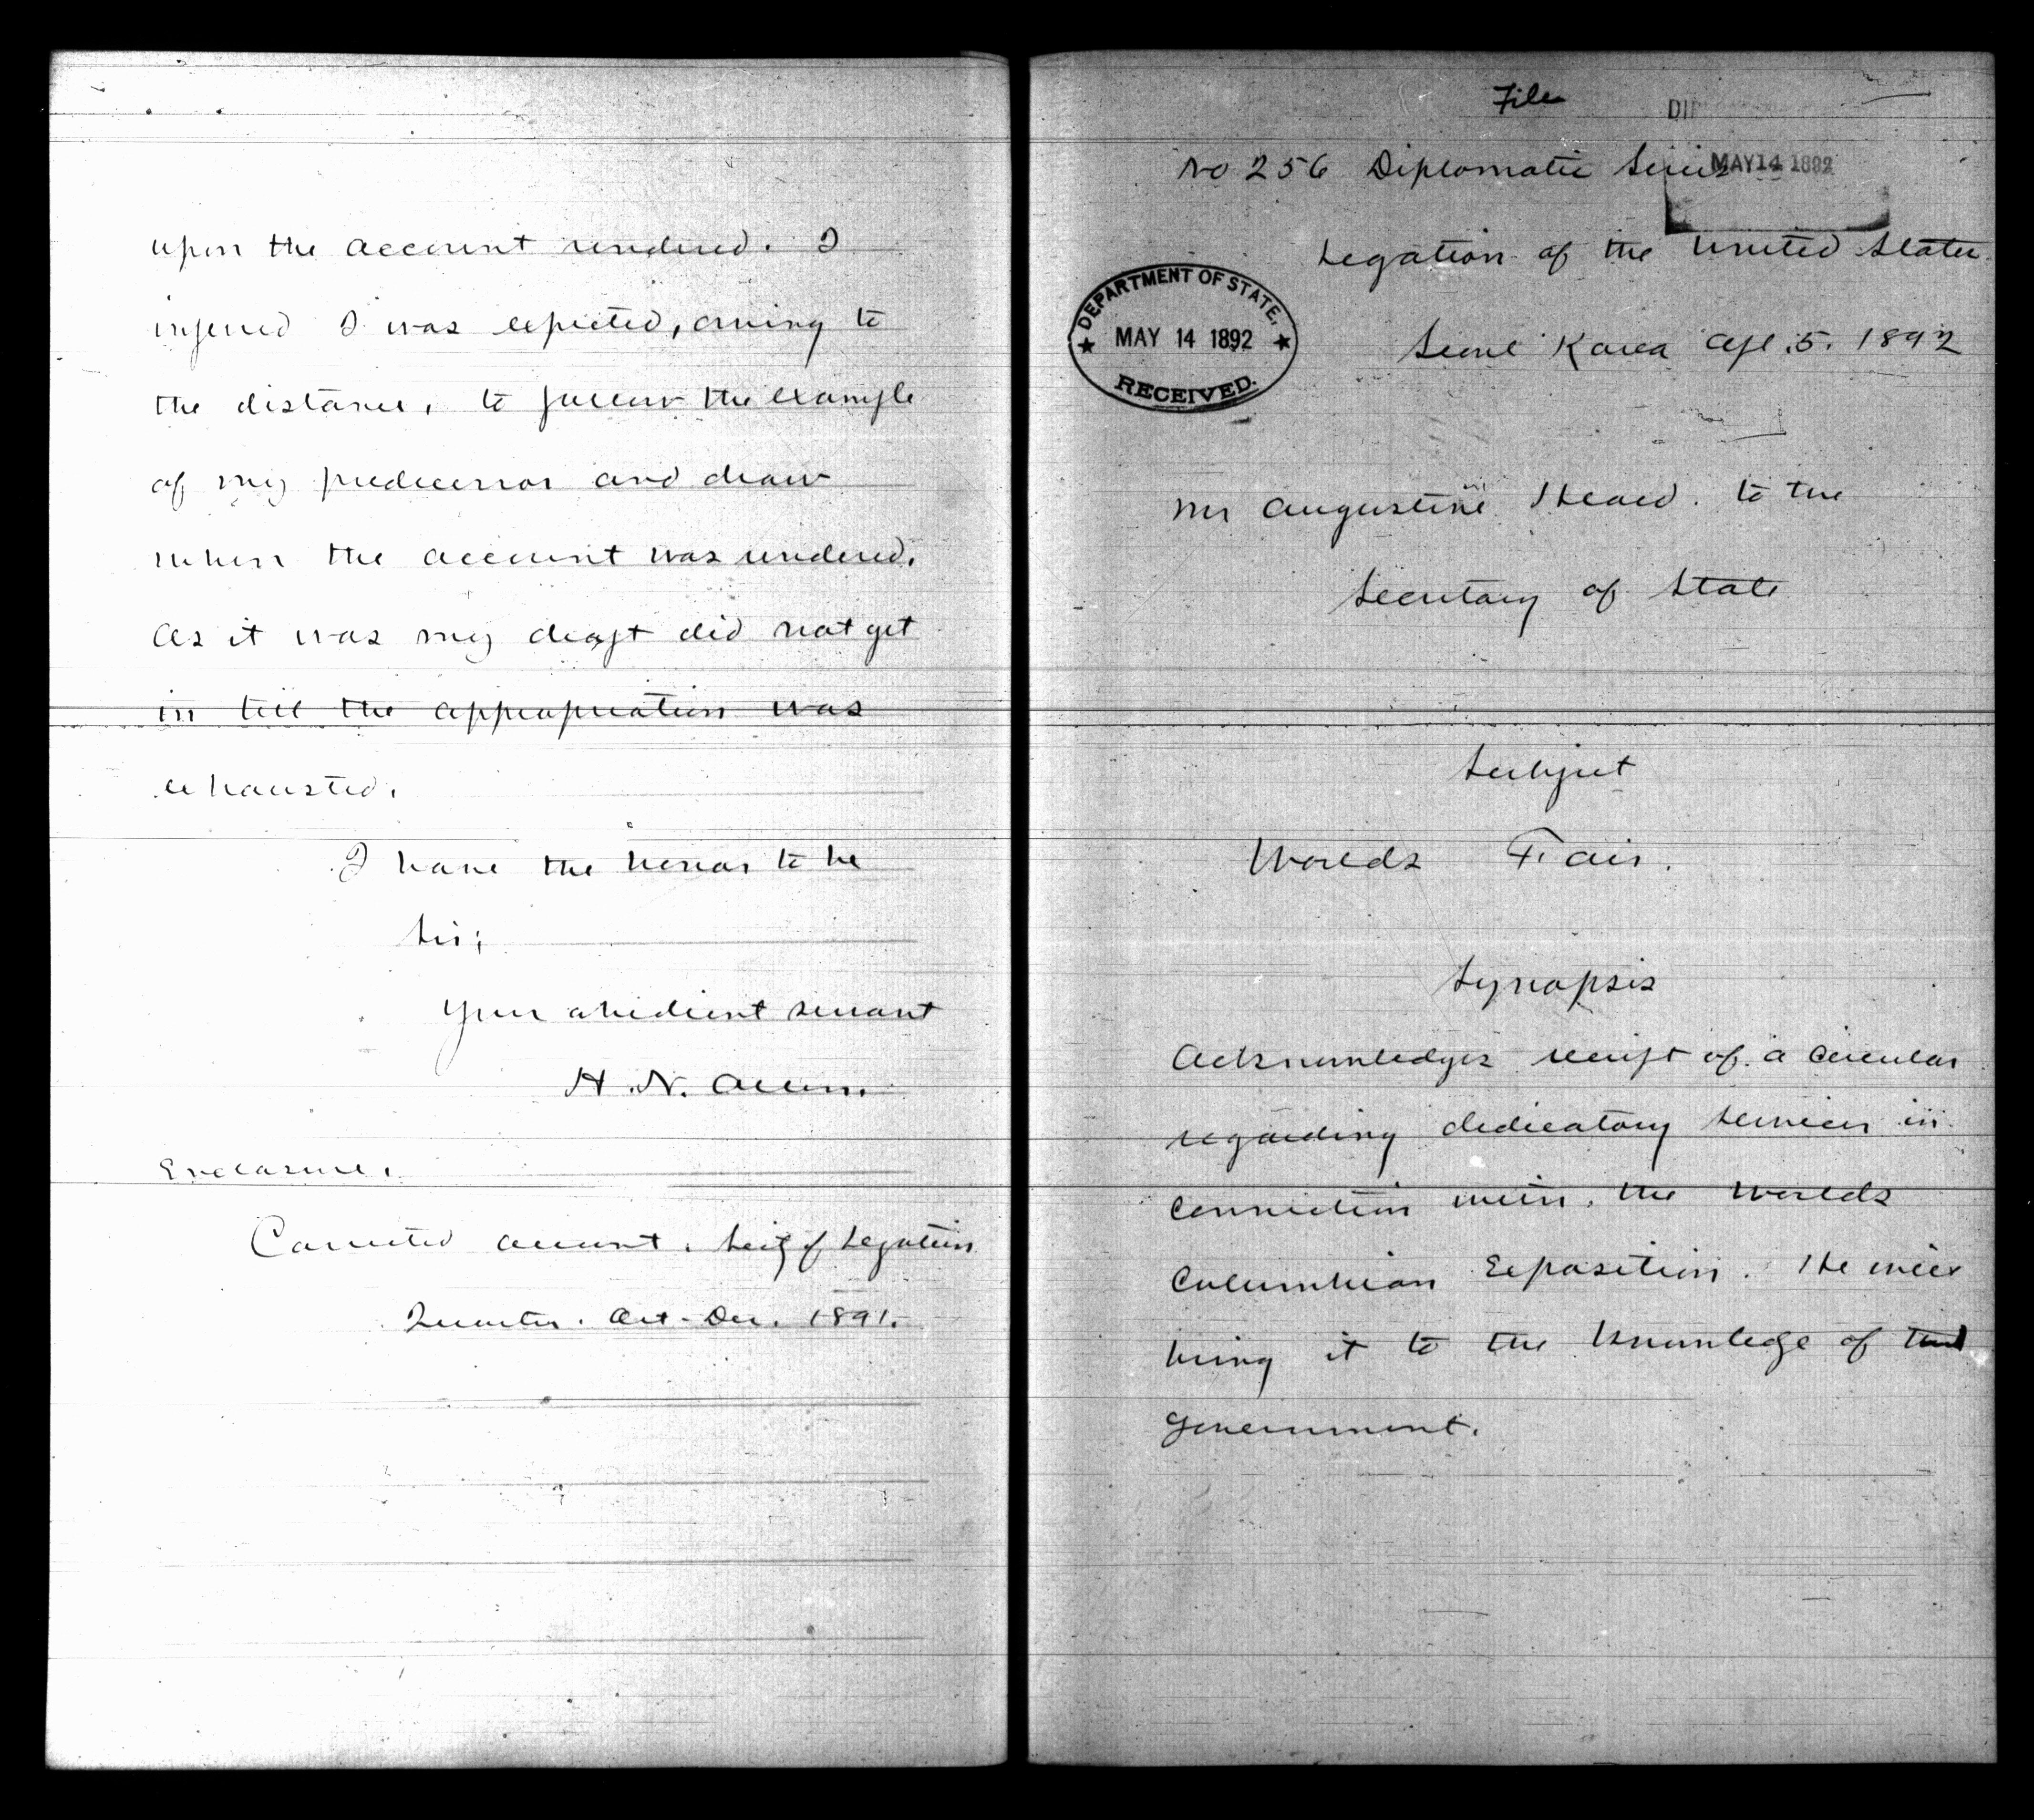 upon the account rendered. I
inferred I was expected, owing to
the distance, to follow the example
of my predecessor and draw
when the account was rendered.
As it was my draft did not get
in till the appropriation was
exhausted.
I have the honor to be
Sir;
Your obedient servant
H. N. Allen.
Enclosure.
Corrected account. Sec'y of Legation
Quarter. Oct-Dec. 1891.
File
No 256 Diplomatic Series
MAY 14 1892
Legation of the United States
DEPARTMENT OF STATE,
MAY 14 1892
RECEIVED.
Seoul Korea Apl. 5. 1892
Mr Augustine Heard. to the
Secretary of State
Subject
Worlds Fair.
Synopsis
Acknowledges receipt of a circular
regarding dedicatory services in
connection with the Worlds
Columbian Exposition. He will
bring it to the knowledge of
Government.